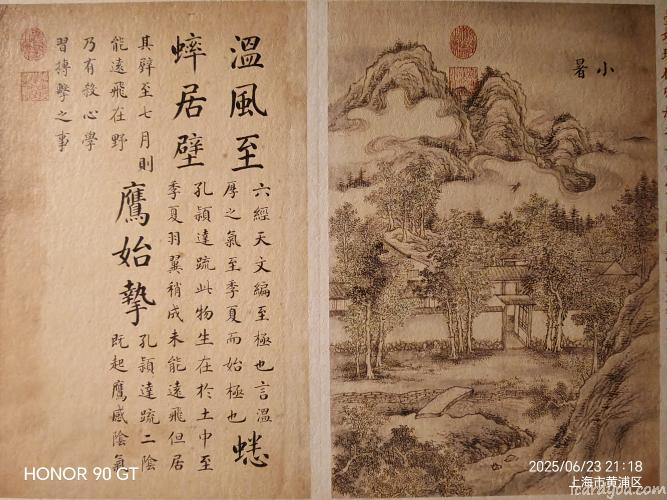 小暑
溫風至
六經天文編至極也言溫
厚之氣至季夏而始極也
蟋
蟀居壁
孔穎達疏此物生在於土中至
季夏羽翼稍成未能遠飛但居
其壁至七月則
能遠飛在野
鷹始摯
孔穎達疏二陰
既起鷹感陰氣
乃有殺心學
習搏擊之事
HONOR 90 GT
2025/06/23 21:18
上海市黄浦区
icarayou.com